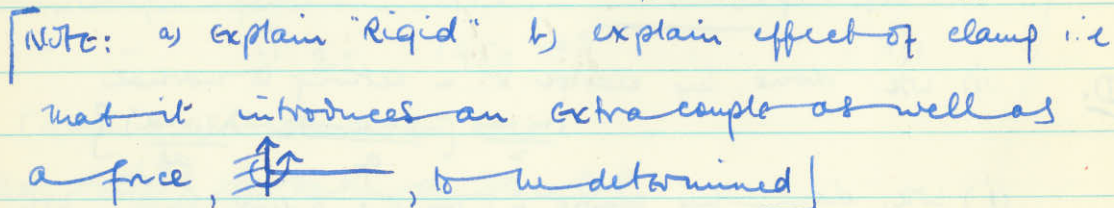 [NOTE: a) Explain "Rigid" b) explain effect of clamp i.e
that it introduces an extra couple as well as
a force, , to be determined]